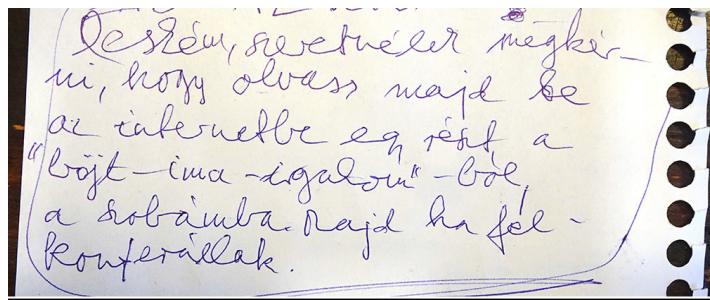 Öcsém, szeretnélek megkér-
ni, hogy olvass majd be
az internetbe egy részt, a
"böjt-ima-irgalom"-ból,
a szobámba. Majd ha fel-
konferállak.